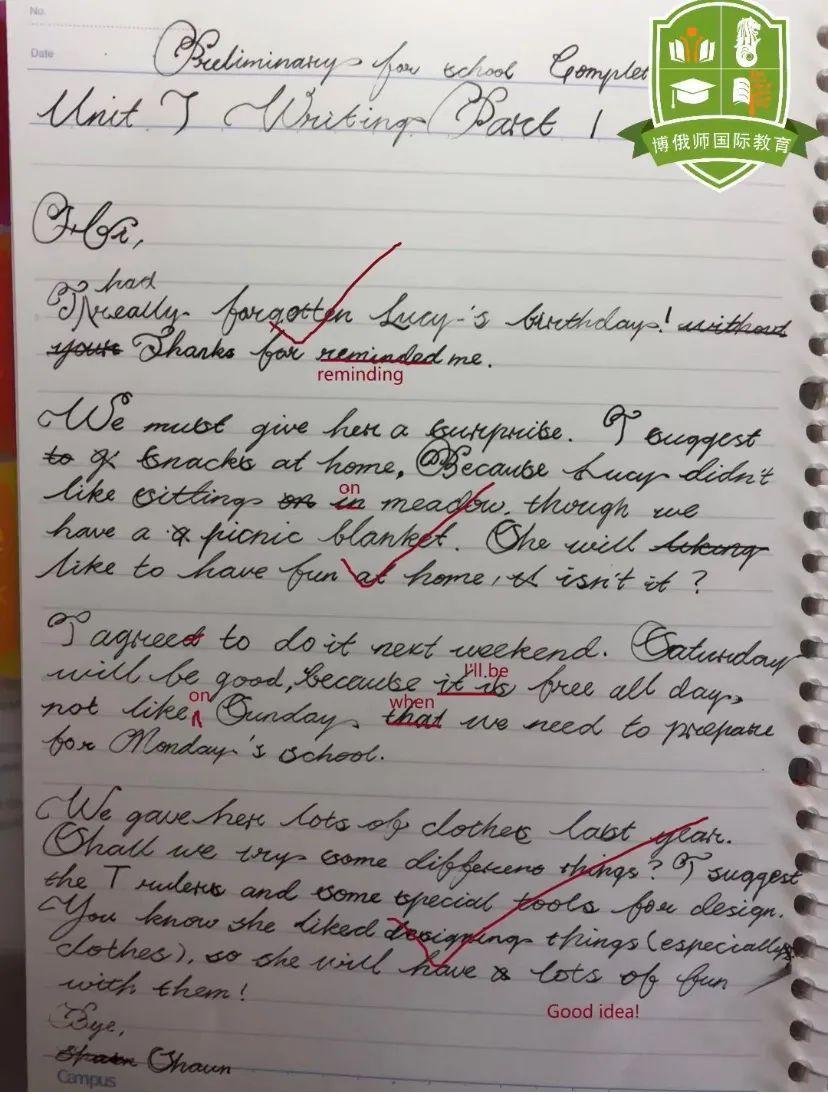 No.
Date
Preliminary for school Complet
Unit 7 Writing Part 1
博俄师国际教育
Hi,
had
I really forgotten Lucy's birthday! without
your Thanks for reminded me.
reminding
We must give her a surprise. I suggest
to snacks at home. Because Lucy didn't
on
like sitting on in meadow, though we
have a picnic blanket. She will liking
like to have fun at home, isn't it?
I agreed to do it next weekend. Saturday
I'll be
will be good, because it is free all day,
on when
not like Sunday that we need to prepare
for Monday's school.
We gave her lots of clothes last year.
Shall we try some different things? I suggest
the T rulers and some special tools for design.
You know she liked designing things (especially
clothes), so she will have lots of fun
with them!
Good idea!
Bye,
Shaun Shaun
Campus